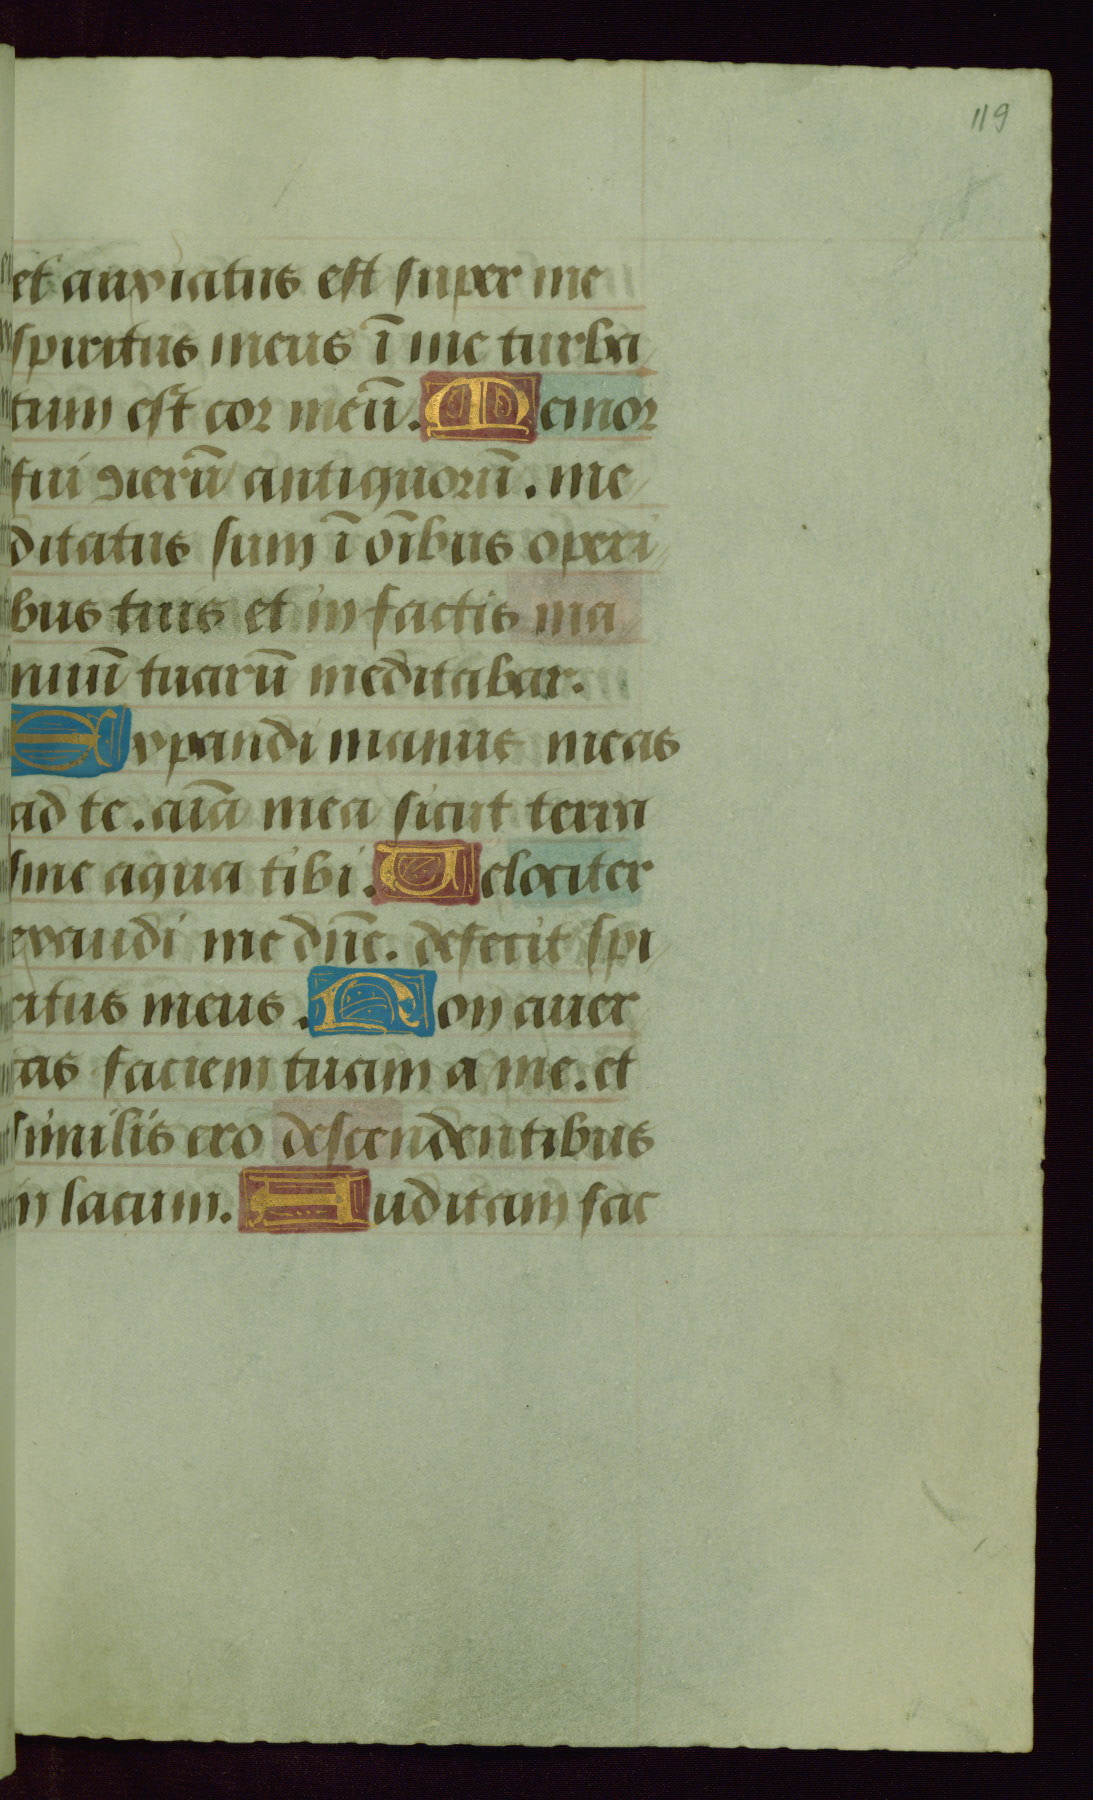 119
et anxiatus est super me
spiritus meus ī me turba
tum est cor meū. Memor
fui dierū antiquorū. me
ditatus sum ī oībus operi
bus tuis et in factis ma
nuū tuarū meditabar.
Expandi manus meas
ad te. aīa mea sicut terra
sine aqua tibi. Velociter
exaudi me dn̄e. defecit spi
ritus meus. Non auer
tas faciem tuam a me. et
similis ero descendentibus
in lacum. Auditam fac